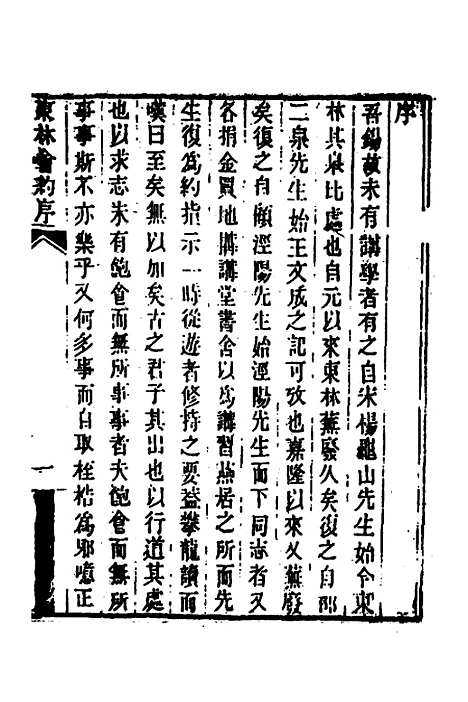 序
吾錫故未有講學者有之自宋楊龜山先生始今東
林其皋比處也自元以來東林蕪廢久矣復之自邵
二泉先生始王文成之記可攷也嘉隆以來又蕪廢
矣復之自顧涇陽先生始涇陽先生而下同志者又
各捐金買地搆講堂書舍以爲講習燕居之所而先
生復爲約指示一時從遊者修持之要益攀龍讀而
嘆曰至矣無以加矣古之君子其出也以行道其處
也以求志未有飽食而無所事事者夫飽食而無所
事事斯不亦樂乎又何多事而自取桎梏爲邪噫正
東林會約序
一